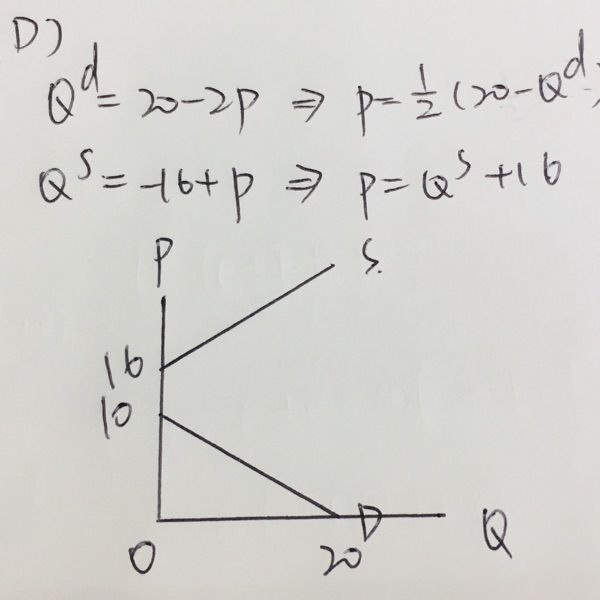 D)
Qᵈ = 20-2P ⇒ P = ½(20-Qᵈ)
Qˢ = -16+P ⇒ P = Qˢ+16
P
S.
16
10
D
0
20
Q